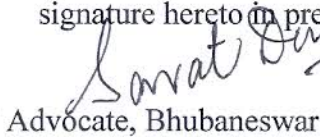 signature hereto in pre
Sarat Das
Advocate, Bhubaneswar